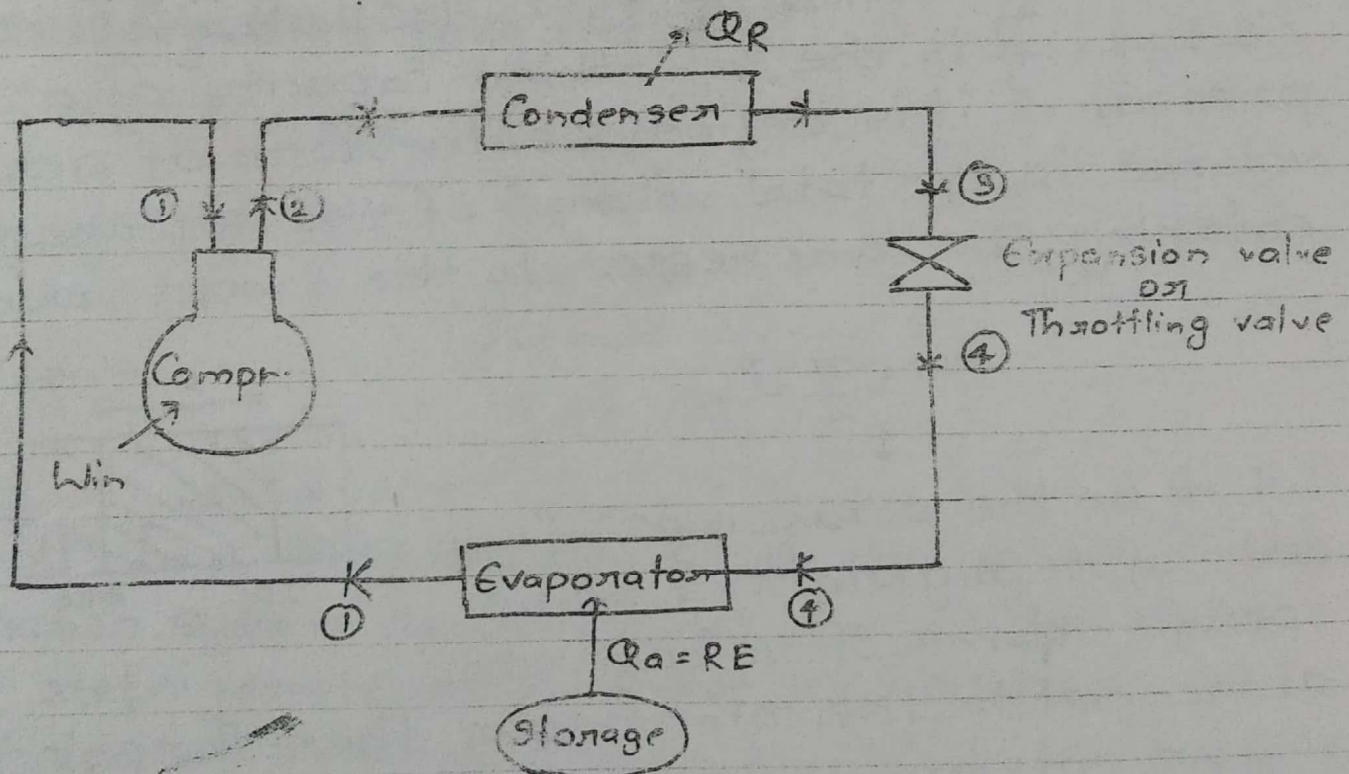 QR
Condenser
① ②
③
Expansion valve
or
Throttling valve
④
Compr.
Win
Evaporator
① ④
Qa = RE
Storage